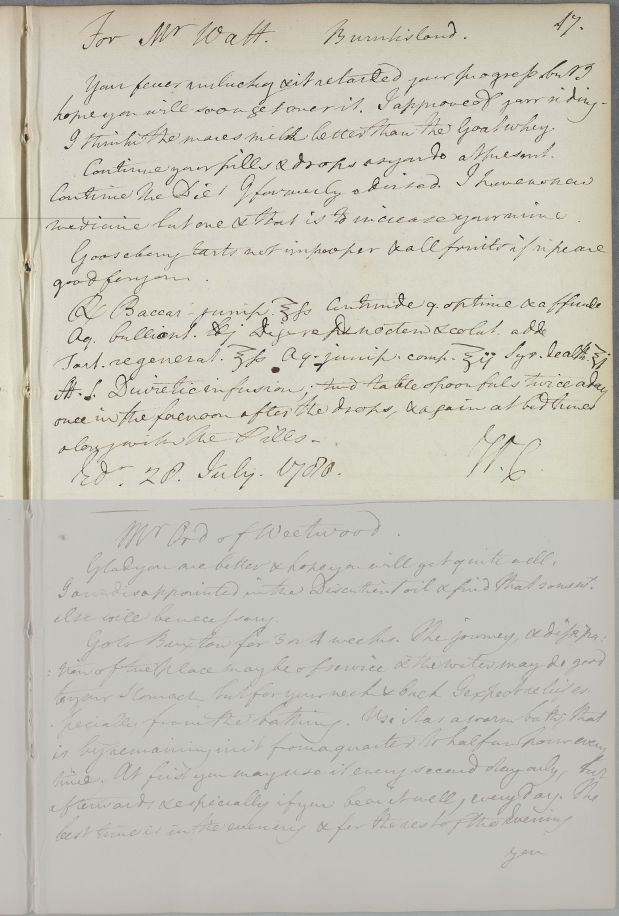 For Mr Watt. Burntisland. 47.
Your fever unlucky & it retarded your progress but I
hope you will soon get over it. I approve of your riding -
I think the mares milk better than the Goat whey
Continue your pills & drops as you do at present.
Continue the Diet I formerly advised. I have no new
medicine but one & that is to increase your urine.
Gooseberry tarts not improper & all fruits if ripe are
good for you.
℞ Baccar. junip. ℥ſs Contunde q. optime & affunde
Aq. bullient. ℔j Digere per noctem & colat. adde
Tart. regenerat. ℥ſs Aq. junip. comp. ℥ij Syr. de alth. ℥j
St. S. Diuretic infusion, two table spoonfuls twice a day
once in the forenoon after the drops, & again at bed time
along with the Pills -
Edr. 28. July. 1780. W.C.
Mr Ord of Weetwood.
Glad you are better & hope you will get quite well.
I am disappointed in the Discutient oil & find that somewt.
else will be necessary.
Go to Buxton for 3 or 4 weeks. The journey, & dissipa-
:tion of the Place may be of service & the water may do good
to your stomach but for your neck & back I expect relief es
:pecially from the bathing. Use it as a warm bath, that
is by remaining in it from a quarter to half an hour every
time. At first you may use it every second day only, but
afterwards & especially if you bear it well, every Day. The
best time is in the evening & for the rest of the evening
you